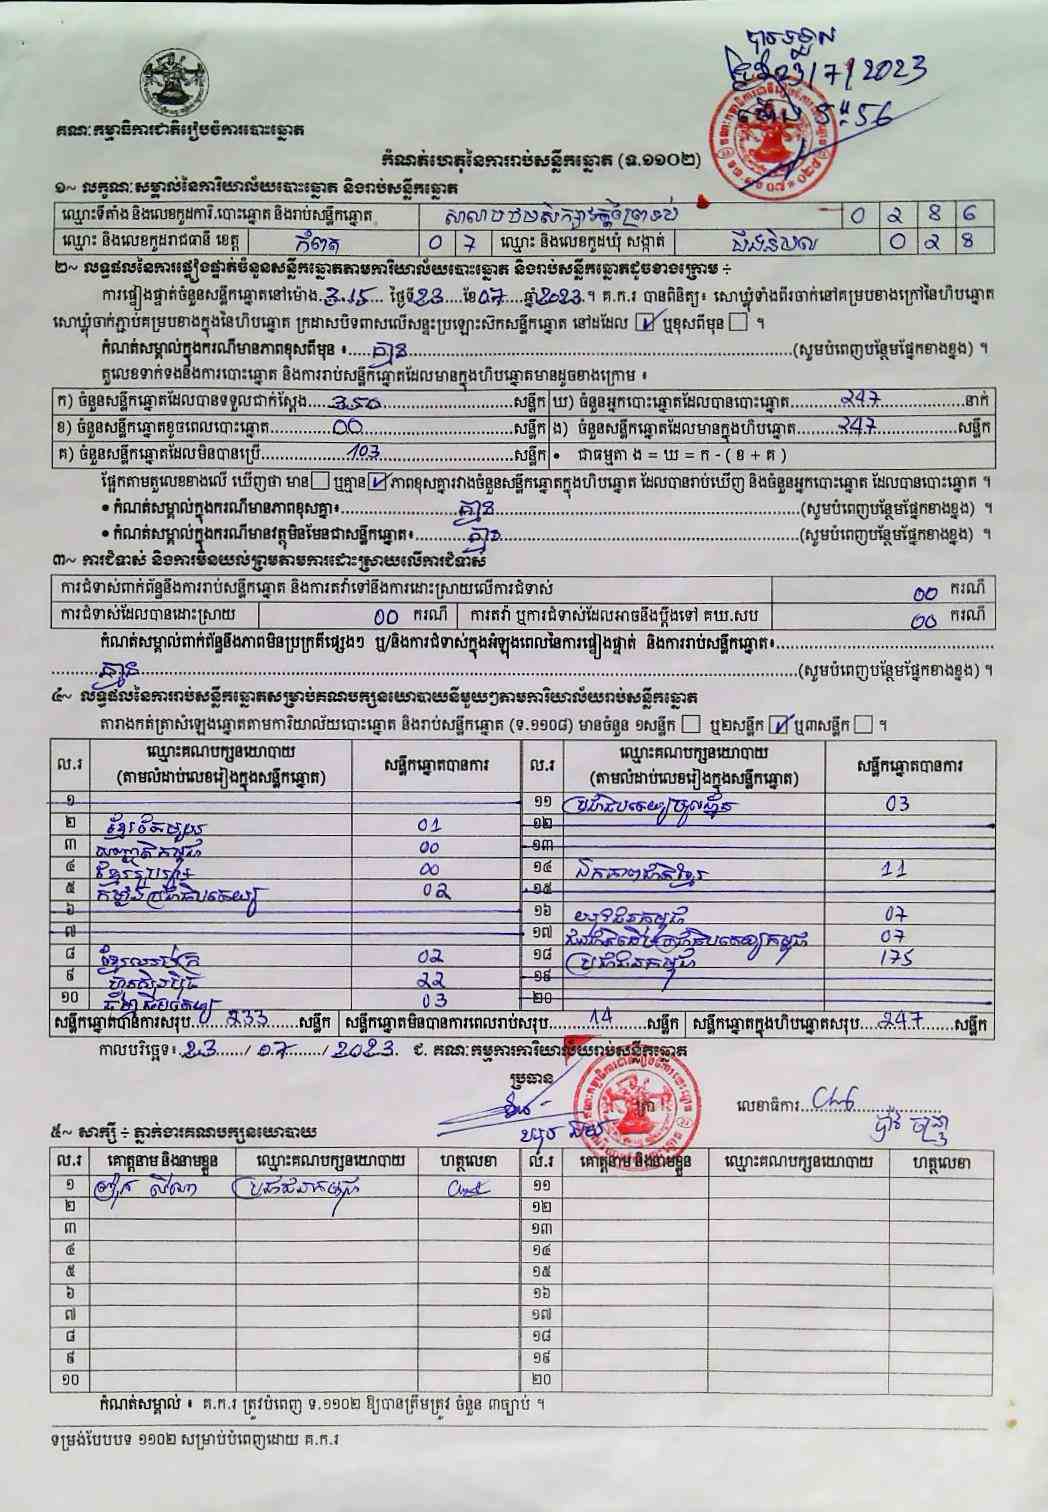 បានទទួល
ថ្ងៃ 23/7/2023
គណៈកម្មាធិការជាតិរៀបចំការបោះឆ្នោត
កំណត់ហេតុនៃការរាប់សន្លឹកឆ្នោត (ទ.១១០២)
១~ លក្ខណៈសម្គាល់នៃការិយាល័យបោះឆ្នោត និងរាប់សន្លឹកឆ្នោត
ឈ្មោះទីតាំង និងលេខកូដការិ.បោះឆ្នោត និងរាប់សន្លឹកឆ្នោត 0 2 8 6
ឈ្មោះ និងលេខកូដរាជធានី ខេត្ត កំពត 0 7 ឈ្មោះ និងលេខកូដឃុំ សង្កាត់ 0 2 8
២~ លទ្ធផលនៃការផ្ទៀងផ្ទាត់ចំនួនសន្លឹកឆ្នោតតាមការិយាល័យបោះឆ្នោត និងរាប់សន្លឹកឆ្នោតដូចខាងក្រោម ÷
ការផ្ទៀងផ្ទាត់ចំនួនសន្លឹកឆ្នោតនៅម៉ោង 3.15 ថ្ងៃទី 23 ខែ 07 ឆ្នាំ 2023 ។ គ.ក.រ បានពិនិត្យ៖ សោឃ្មុំទាំងពីរចាក់នៅគម្របខាងក្រៅនៃហិបឆ្នោត
សោឃ្មុំចាក់ភ្ជាប់គម្របខាងក្នុងនៃហិបឆ្នោត ក្រដាសបិទពាសលើសន្ទះប្រឡោះស៊កសន្លឹកឆ្នោត នៅដដែល ☑ ឬខុសពីមុន ☐ ។
កំណត់សម្គាល់ក្នុងករណីមានភាពខុសពីមុន ៖ គ្មាន (សូមបំពេញបន្ថែមផ្នែកខាងខ្នង) ។
តួលេខទាក់ទងនឹងការបោះឆ្នោត និងការរាប់សន្លឹកឆ្នោតដែលមានក្នុងហិបឆ្នោតមានដូចខាងក្រោម ៖
ក) ចំនួនសន្លឹកឆ្នោតដែលបានទទួលជាក់ស្តែង 350 សន្លឹក ឃ) ចំនួនអ្នកបោះឆ្នោតដែលបានបោះឆ្នោត 247 នាក់
ខ) ចំនួនសន្លឹកឆ្នោតខូចពេលបោះឆ្នោត 00 សន្លឹក ង) ចំនួនសន្លឹកឆ្នោតដែលមានក្នុងហិបឆ្នោត 247 សន្លឹក
គ) ចំនួនសន្លឹកឆ្នោតដែលមិនបានប្រើ 103 សន្លឹក • ជាធម្មតា ង = ឃ = ក - ( ខ + គ )
ផ្អែកតាមតួលេខខាងលើ ឃើញថា មាន ☐ ឬគ្មាន ☑ ភាពខុសគ្នារវាងចំនួនសន្លឹកឆ្នោតក្នុងហិបឆ្នោត ដែលបានរាប់ឃើញ និងចំនួនអ្នកបោះឆ្នោត ដែលបានបោះឆ្នោត ។
• កំណត់សម្គាល់ក្នុងករណីមានភាពខុសគ្នា៖ គ្មាន (សូមបំពេញបន្ថែមផ្នែកខាងខ្នង) ។
• កំណត់សម្គាល់ក្នុងករណីមានវត្ថុមិនមែនជាសន្លឹកឆ្នោត៖ គ្មាន (សូមបំពេញបន្ថែមផ្នែកខាងខ្នង) ។
៣~ ការជំទាស់ និងការមិនយល់ព្រមតាមការដោះស្រាយលើការជំទាស់
ការជំទាស់ពាក់ព័ន្ធនឹងការរាប់សន្លឹកឆ្នោត និងការតវ៉ាទៅនឹងការដោះស្រាយលើការជំទាស់ 00 ករណី
ការជំទាស់ដែលបានដោះស្រាយ 00 ករណី ការតវ៉ា ឬការជំទាស់ដែលអាចនឹងប្តឹងទៅ គឃ.សប 00 ករណី
កំណត់សម្គាល់ពាក់ព័ន្ធនឹងភាពមិនប្រក្រតីផ្សេងៗ ឬ/និងការជំទាស់ក្នុងអំឡុងពេលនៃការផ្ទៀងផ្ទាត់ និងការរាប់សន្លឹកឆ្នោត៖
គ្មាន (សូមបំពេញបន្ថែមផ្នែកខាងខ្នង) ។
៤~ លទ្ធផលនៃការរាប់សន្លឹកឆ្នោតសម្រាប់គណបក្សនយោបាយនីមួយៗតាមការិយាល័យរាប់សន្លឹកឆ្នោត
តារាងកត់ត្រាសំឡេងឆ្នោតតាមការិយាល័យបោះឆ្នោត និងរាប់សន្លឹកឆ្នោត (ទ.១១០៨) មានចំនួន ១សន្លឹក ☐ ឬ២សន្លឹក ☑ ឬ៣សន្លឹក ☐ ។
ល.រ ឈ្មោះគណបក្សនយោបាយ (តាមលំដាប់លេខរៀងក្នុងសន្លឹកឆ្នោត) សន្លឹកឆ្នោតបានការ ល.រ ឈ្មោះគណបក្សនយោបាយ (តាមលំដាប់លេខរៀងក្នុងសន្លឹកឆ្នោត) សន្លឹកឆ្នោតបានការ
១ ១១ 03
២ 01 ១២
៣ 00 ១៣
៤ 00 ១៤ ឯកភាពជាតិខ្មែរ 11
៥ កម្លាំងប្រជាធិបតេយ្យ 02 ១៥
៦ ១៦ យុវជនកម្ពុជា 07
៧ ១៧ 07
៨ 02 ១៨ ប្រជាជនកម្ពុជា 175
៩ ហ្វ៊ុនស៊ិនប៉ិច 22 ១៩
១០ 03 ២០
សន្លឹកឆ្នោតបានការសរុប 233 សន្លឹក សន្លឹកឆ្នោតមិនបានការពេលរាប់សរុប 14 សន្លឹក សន្លឹកឆ្នោតក្នុងហិបឆ្នោតសរុប 247 សន្លឹក
កាលបរិច្ឆេទ៖ 23 / 07 / 2023. ជ. គណៈកម្មការការិយាល័យរាប់សន្លឹកឆ្នោត
ប្រធាន
លេខាធិការ
៥~ សាក្សី ÷ ភ្នាក់ងារគណបក្សនយោបាយ
ល.រ គោត្តនាម និងនាមខ្លួន ឈ្មោះគណបក្សនយោបាយ ហត្ថលេខា ល.រ គោត្តនាម និងនាមខ្លួន ឈ្មោះគណបក្សនយោបាយ ហត្ថលេខា
១ ប្រជាជនកម្ពុជា ១១
២ ១២
៣ ១៣
៤ ១៤
៥ ១៥
៦ ១៦
៧ ១៧
៨ ១៨
៩ ១៩
១០ ២០
កំណត់សម្គាល់ ៖ គ.ក.រ ត្រូវបំពេញ ទ.១១០២ ឱ្យបានត្រឹមត្រូវ ចំនួន ៣ច្បាប់ ។
ទម្រង់បែបបទ ១១០២ សម្រាប់បំពេញដោយ គ.ក.រ